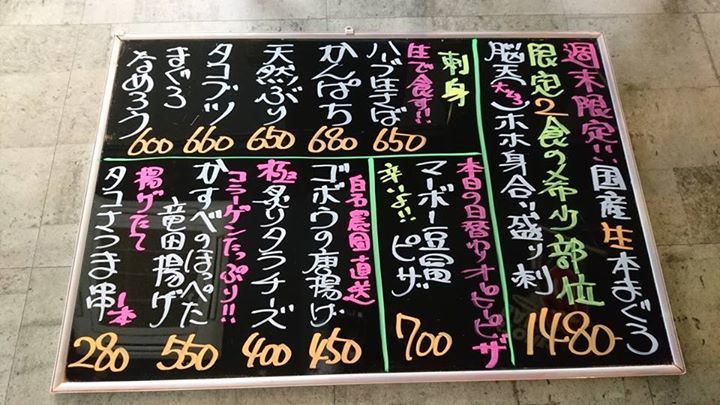 週末限定!!国産生本まぐろ
限定2食の希少部位
脳天(大とろ)ホホ身合い盛り刺
1480
刺身
生で食す!!
ハーブ生さば
650
かんぱち
680
天然ぶり
650
タコブツ
660
まぐろ
なめろう
600
本日の日替わりオピピザ
マーボー豆冨
ピザ
辛いよ!!
700
白石農園直送
ゴボウの唐揚げ
450
極炙りタラチーズ
400
コラーゲンたっぷり!!
かすべのほっぺた
竜田揚げ
550
揚げたて
タコさつま串1本
280